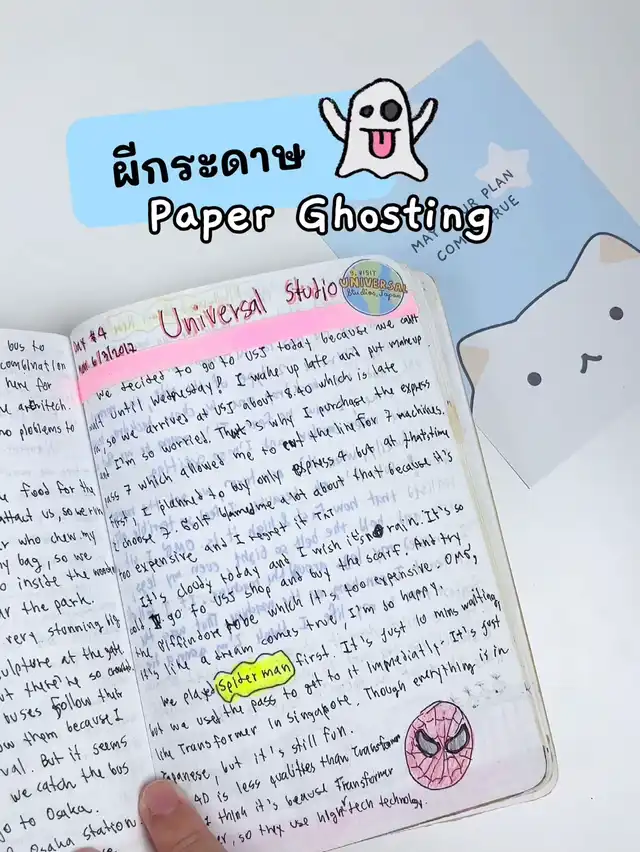 ผีกระดาษ
Paper Ghosting
MAY YOUR PLAN
COME TRUE
bus to
combination
here for
no ploblems to
Universal Studio
9. VISIT
UNIVERSAL
Studios, Japan
Day #4
6/3/2017
We decided to go to USJ today because we can't
wait until Wednesday! I wake up late and put makeup
on, so we arrived at USJ about 8.40 which is late
and I'm so worried. That's why I purchase the express
pass 7 which allowed me to cut the line for 7 machines.
first, I planned to buy only express 4 but at thatstime
I choose 7. Golf blamed me a lot about that because it's
too expensive and I regret it TAT
It's cloudy today and I wish it's no rain. It's so
cold I go to USJ shop and buy the scarf. And try
the Griffindore robe which it's too expensive. OMG,
it's like a dream comes true, I'm so happy.
We played Spiderman first. It's just 10 mins waiting,
but we used the pass to get to it immediatly. It's just
like Transformer in Singapore. Though everything is in
Japanese, but it's still fun.
4D is less qualities than Transformer
I think it's beause Transformer
so they use high tech technology.
food for the
us, so we
who chew my
my bag, so we
inside the
the park.
very stunning big
sculpture at the gate
there're so
buses follow their
them because I
But it seems
we catch the bus
go to Osaka.
Osaka station